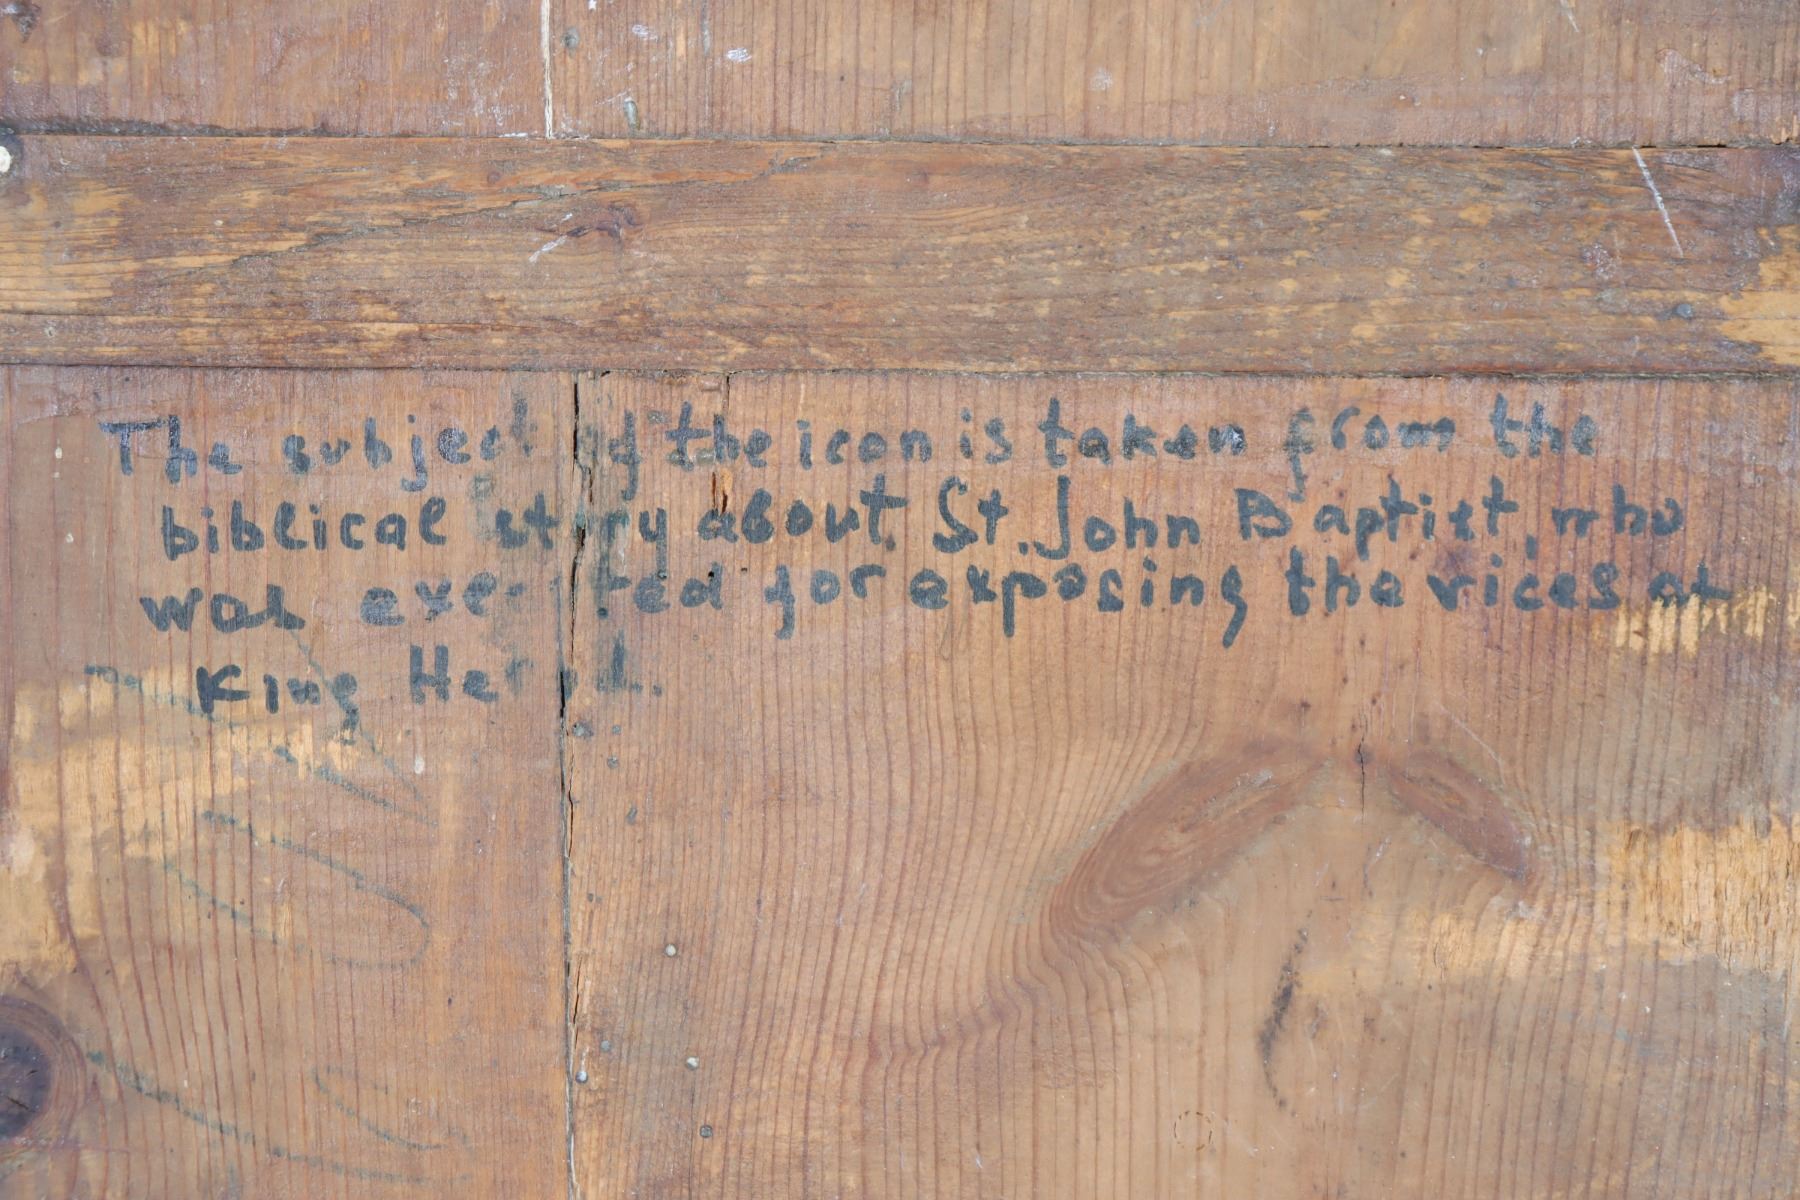 The subject of the icon is taken from the
biblical story about St. John Baptist, who
was executed for exposing the vices of
King Herod.